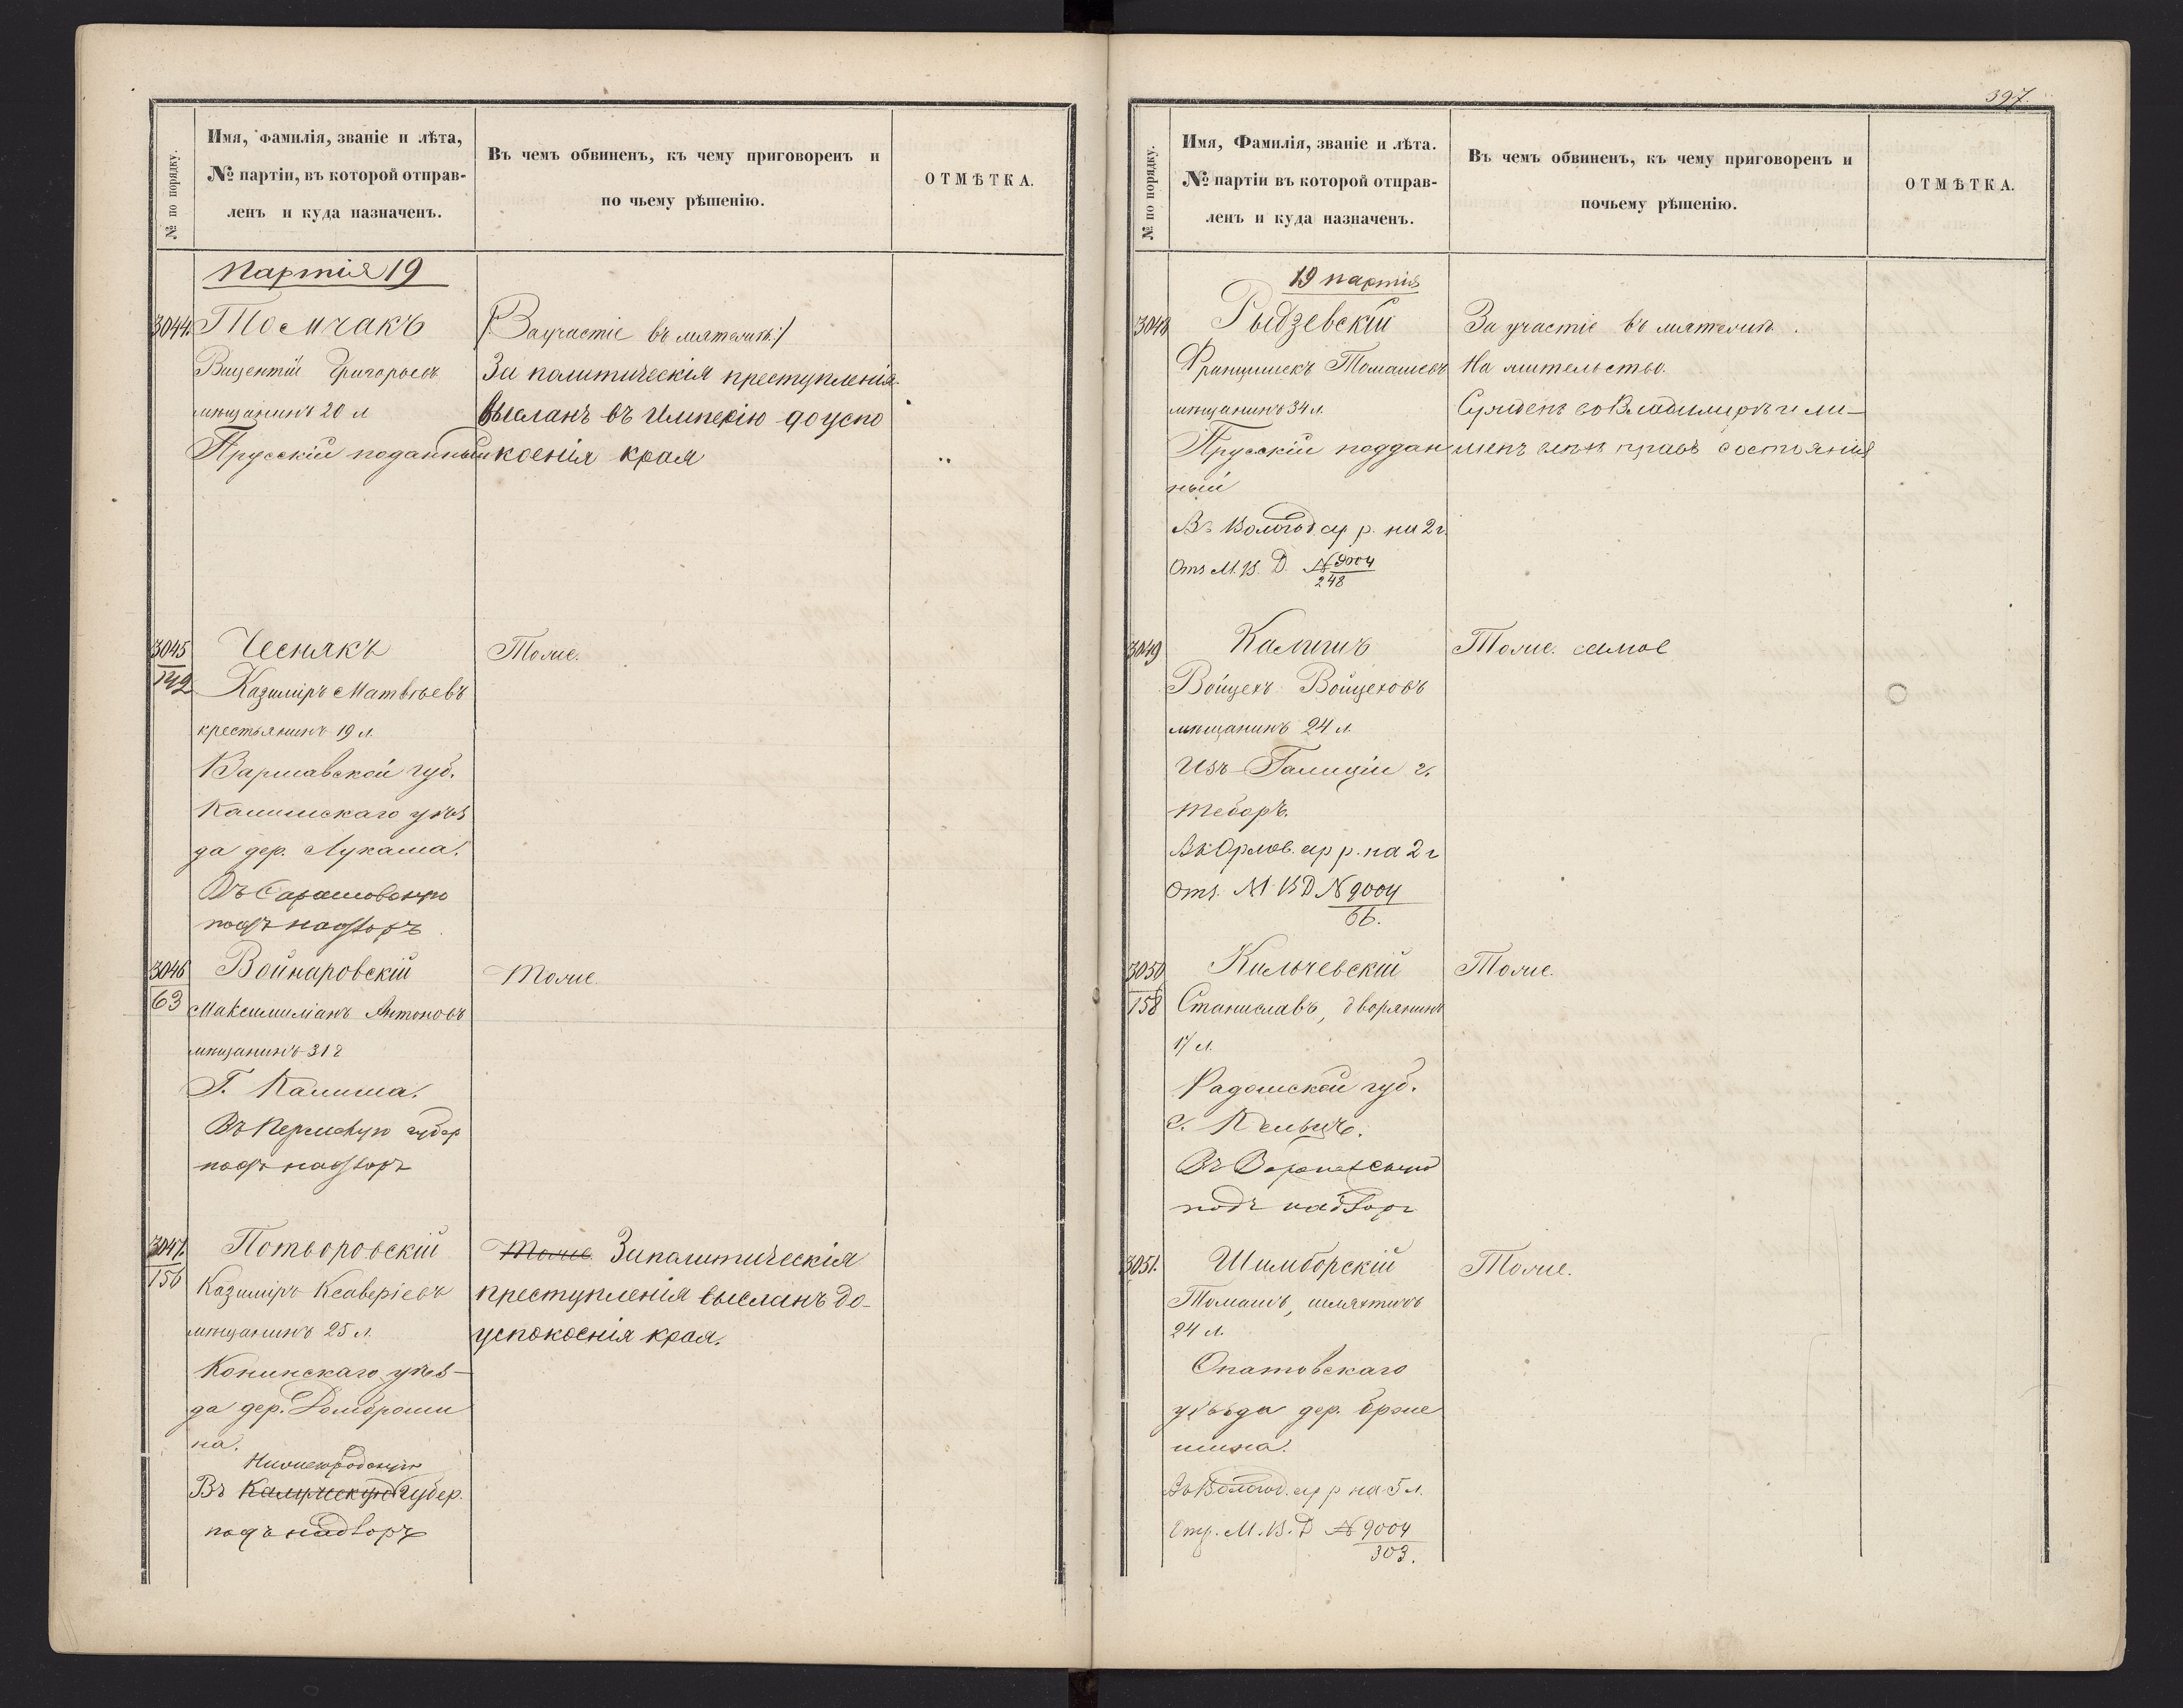 № по порядку.
Имя, Фамилія, званіе и лѣта,
№ партіи, въ которой отправ-
ленъ и куда назначенъ.
Въ чемъ обвиненъ, къ чему приговоренъ и
по чьему рѣшенію.
ОТМѢТКА.
Партія 19
3044.
Томчакъ
Вицентій Григорьевъ
мѣщанинъ 20 л
Прусскій поданный
/:За участіе въ мятежѣ:/
За политическія преступленія
высланъ въ Имперію до успо
коенія края
3045
142
Чеснякъ
Казиміръ Матвѣевъ
крестьянинъ 19 л.
Варшавской губ.
Калишскаго уѣз
да дер. Лукаша.
Въ
подъ надзоръ
Тоже.
3046
63
Войнаровскій
Максимиліанъ Антоновъ
мѣщанинъ 31 г
Г. Калиша.
Въ Пермскую губер
подъ надзоръ
Тоже.
3047.
156
Потворовскій
Казиміръ Ксаверіевъ
мѣщанинъ 25 л.
Конинскаго уѣз-
да дер. Домброши
на.
Нижегородскую
Въ Калужскую губер.
подъ надзоръ
Тоже За политическія
преступленія высланъ до-
успокоенія края.
397.
№ по порядку.
Имя, Фамилія, званіе и лѣта.
№ партіи въ которой отправ-
ленъ и куда назначенъ.
Въ чемъ обвиненъ, къ чему приговоренъ и
почьему рѣшенію.
ОТМѢТКА.
19 партія
3048
Рыдзевскій
Францишекъ Томашевъ
мѣщанинъ 34 л.
Прусскій поддан
ный
Въ Вологод. ар р. на 2 г.
Отз М. В. Д. № 9004
248
За участіе въ мятежѣ.
На жительство.
Сужденъ во Владимирѣ и ли-
шенъ всѣхъ правъ состоянія
3049
Войцехъ Войцеховъ
мѣщанинъ 24 л.
Изъ Галиціи г.
Въ Орлов. ар р. на 2 г
Отз. М. В Д № 9004
66.
Тоже. самое
3050
158
Кильчевскій
Станиславъ, дворянинъ
17 л.
Радомской губ.
г. Кельцъ.
Въ
подъ надзоръ
Тоже.
3051.
Шимборскій
Томашъ, шляхтичъ
24 л.
Опатовскаго
уѣзда дер. Брже
шина.
Въ Вологод. ар р на 5 л.
Отз. М. В. Д № 9004
303.
Тоже.